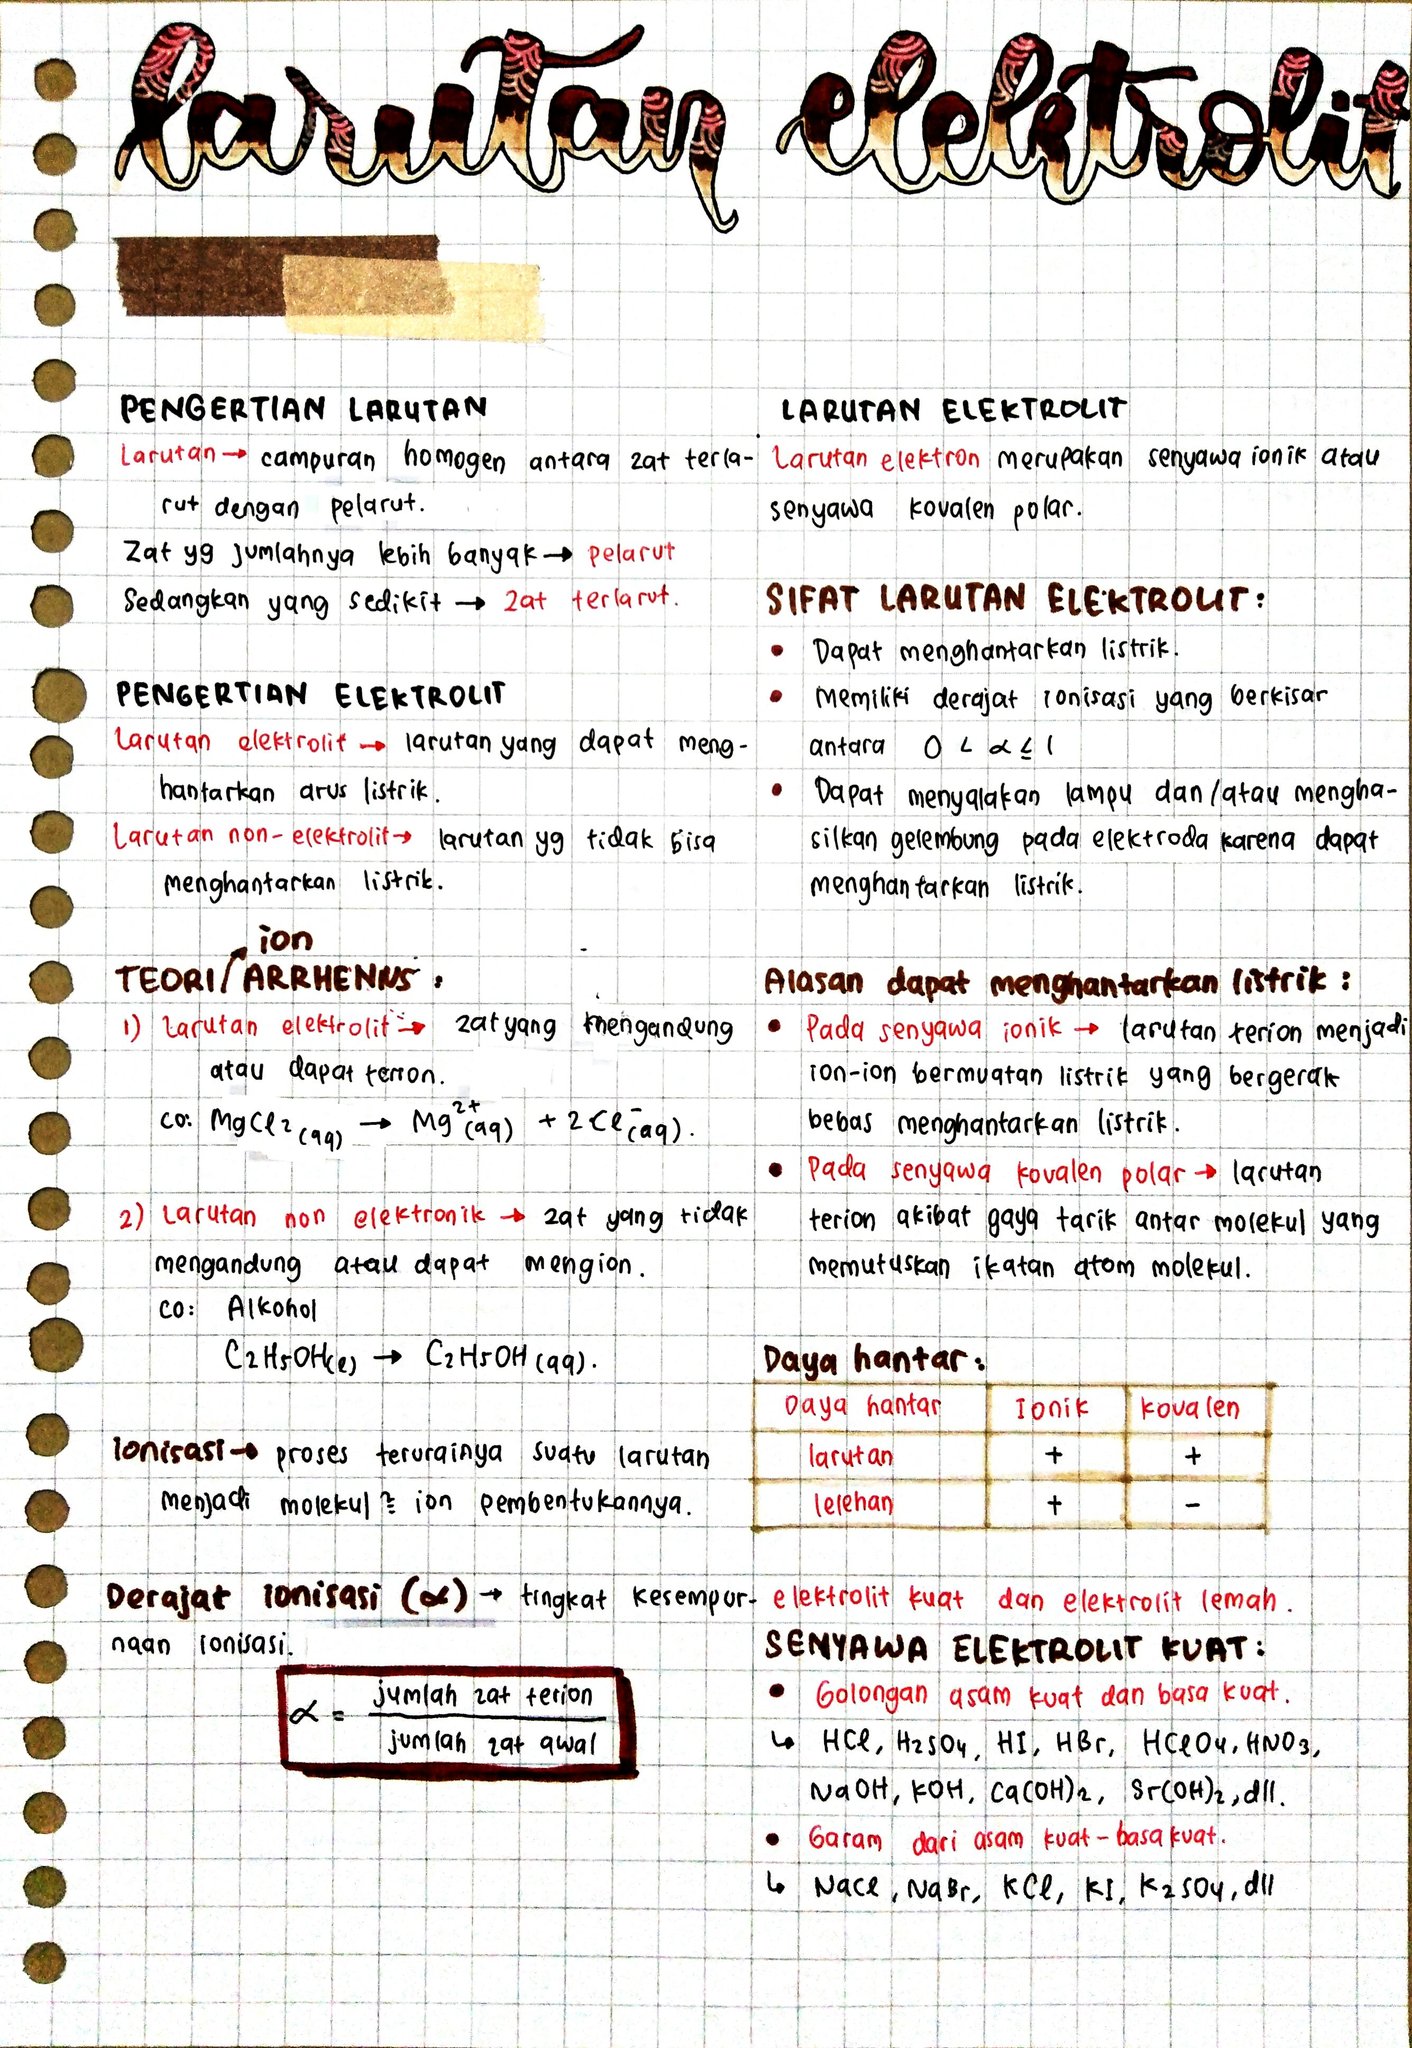 larutan elektrolit
PENGERTIAN LARUTAN
Larutan → campuran homogen antara zat terla-
rut dengan pelarut.
Zat yg jumlahnya lebih banyak → pelarut
Sedangkan yang sedikit → zat terlarut.
PENGERTIAN ELEKTROLIT
Larutan elektrolit → larutan yang dapat meng-
hantarkan arus listrik.
Larutan non-elektrolit → larutan yg tidak bisa
menghantarkan listrik.
ion
TEORI / ARRHENNS :
1) Larutan elektrolit → zat yang mengandung
atau dapat terion.
co: MgCl₂ (aq) → Mg²⁺(aq) + 2Cl⁻(aq).
2) Larutan non elektronik → zat yang tidak
mengandung atau dapat mengion.
co: Alkohol
C₂H₅OH(l) → C₂H₅OH (aq).
Ionisasi → proses terurainya suatu larutan
menjadi molekul² ion pembentukannya.
Derajat ionisasi (α) → tingkat kesempur-
naan ionisasi.
α = jumlah zat terion
jumlah zat awal
LARUTAN ELEKTROLIT
Larutan elektron merupakan senyawa ionik atau
senyawa kovalen polar.
SIFAT LARUTAN ELEKTROLIT :
• Dapat menghantarkan listrik.
• Memiliki derajat ionisasi yang berkisar
antara 0 < α ≤ 1
• Dapat menyalakan lampu dan/atau mengha-
silkan gelembung pada elektroda karena dapat
menghantarkan listrik.
Alasan dapat menghantarkan listrik :
• Pada senyawa ionik → larutan terion menjadi
ion-ion bermuatan listrik yang bergerak
bebas menghantarkan listrik.
• Pada senyawa kovalen polar → larutan
terion akibat gaya tarik antar molekul yang
memutuskan ikatan atom molekul.
Daya hantar :
Daya hantar Ionik Kovalen
larutan + +
lelehan + -
elektrolit kuat dan elektrolit lemah.
SENYAWA ELEKTROLIT KUAT :
• Golongan asam kuat dan basa kuat.
↳ HCl, H₂SO₄, HI, HBr, HClO₄, HNO₃,
NaOH, KOH, Ca(OH)₂, Sr(OH)₂, dll.
• Garam dari asam kuat - basa kuat.
↳ NaCl, NaBr, KCl, KI, K₂SO₄, dll